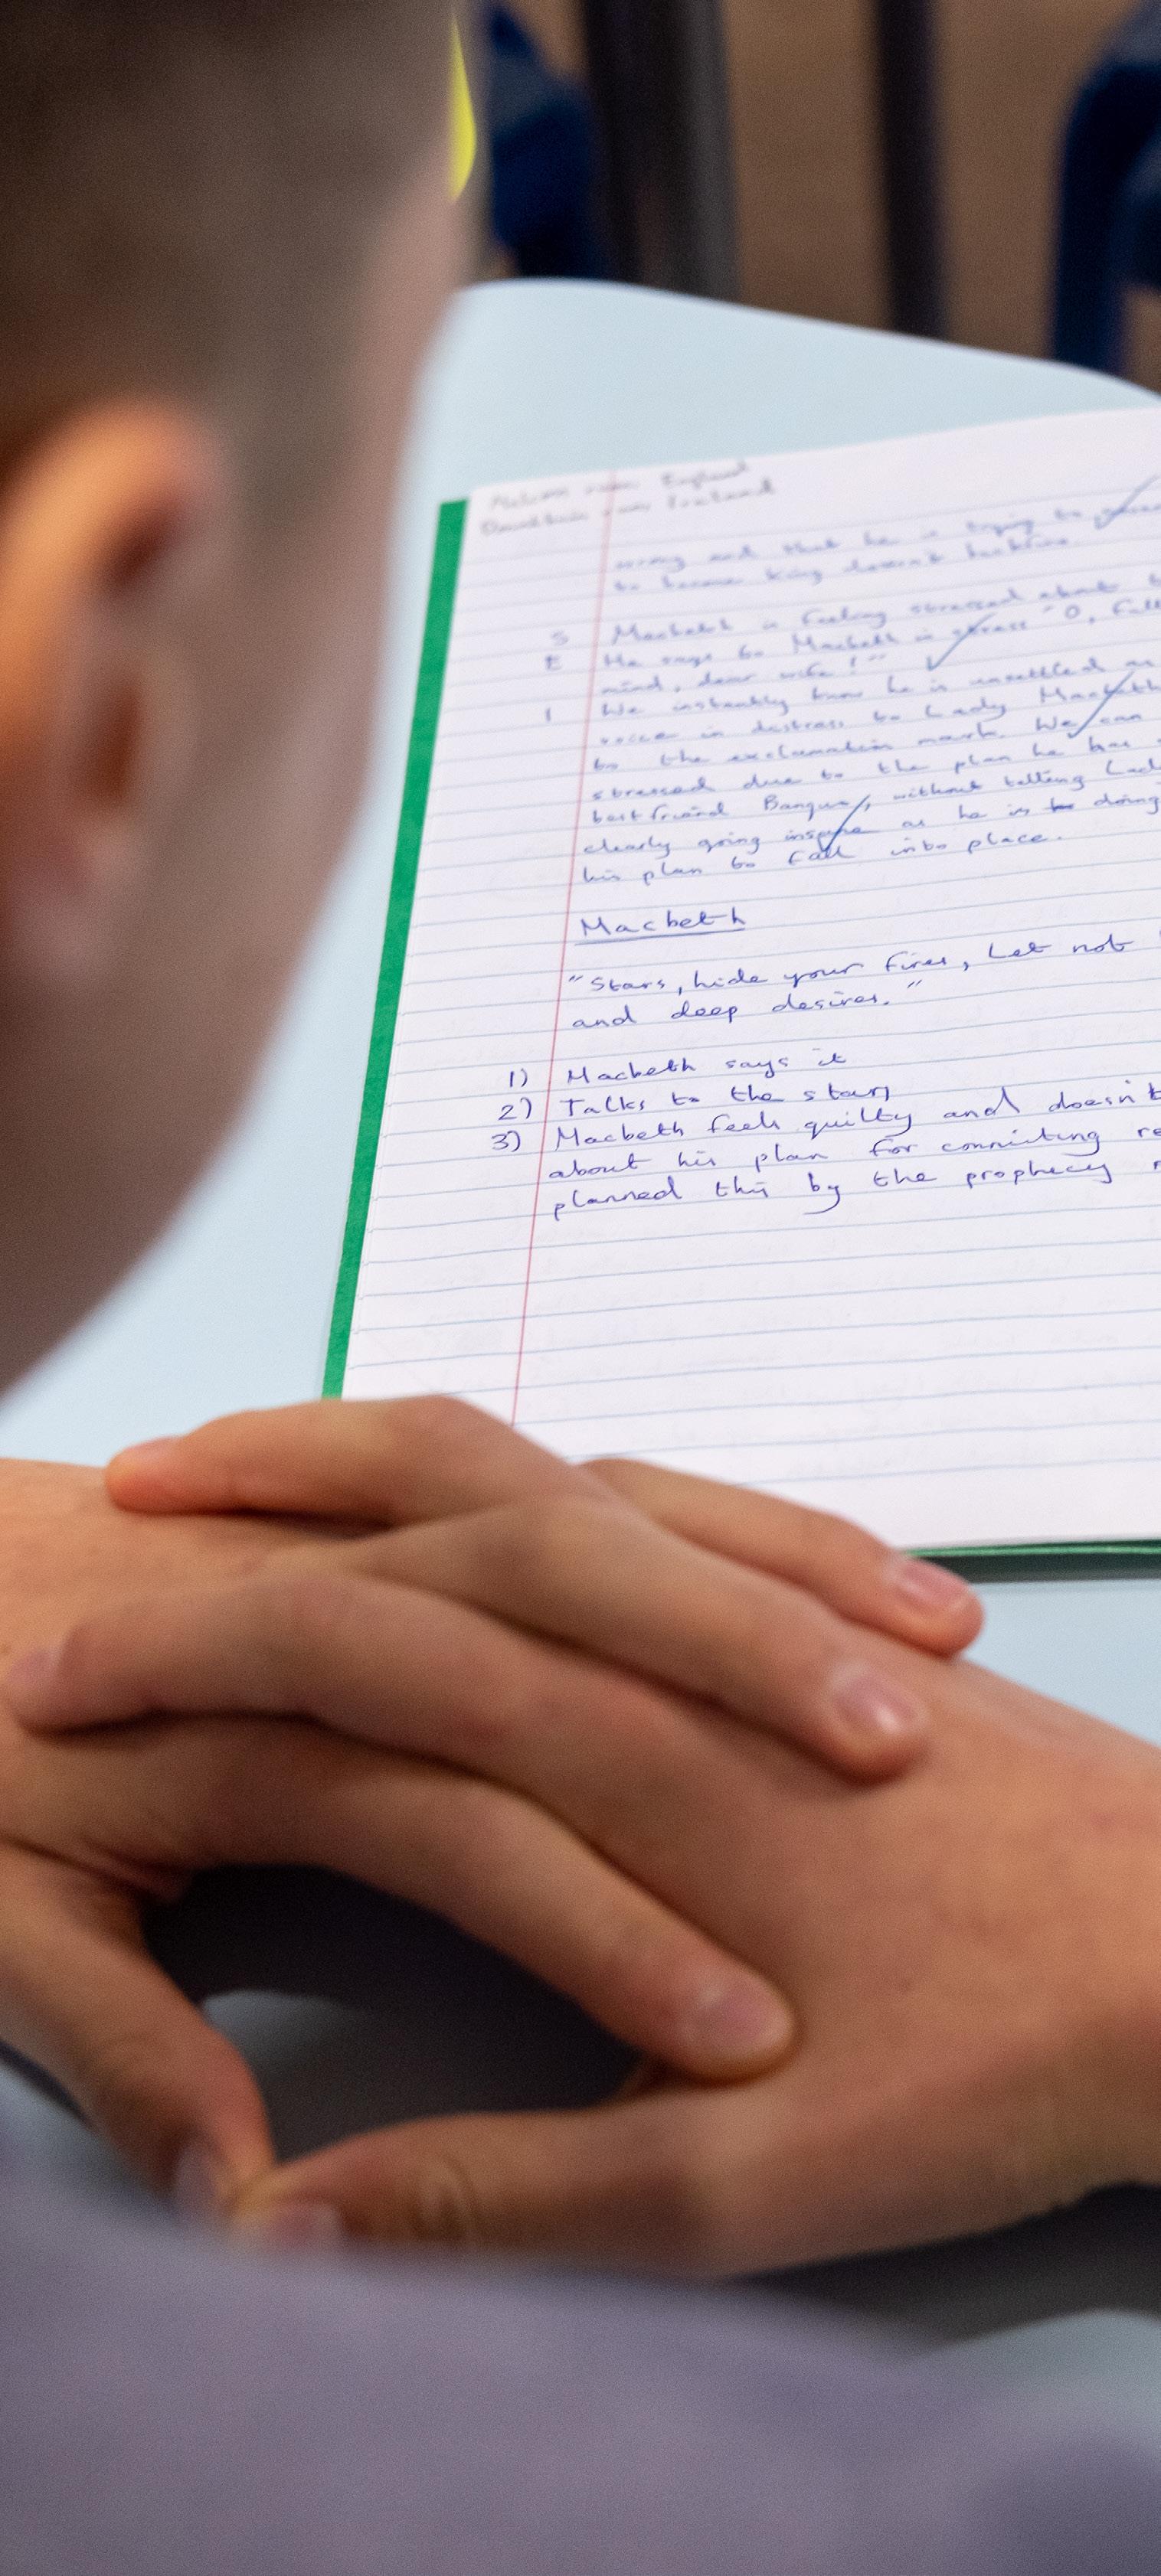 Malcolm runs England
Donalbain runs Ireland
wrong and that he is trying to
to become king doesn't
S Macbeth is feeling stressed about
E He says to Macbeth in stress "O, full
mind, dear wife!"
I We instantly know he is unsettled as
voice in distress to Lady Macbeth
to the exclamation mark. We can
stressed due to the plan he has
bestfriend Banquo, without telling Lad
clearly going inspane as he is doing
his plan to fall into place.
Macbeth
"Stars, hide your fires, Let not
and deep desires."
1) Macbeth says it
2) Talks to the stars
3) Macbeth feels guilty and doesn't
about his plan for commiting re
planned this by the prophecy